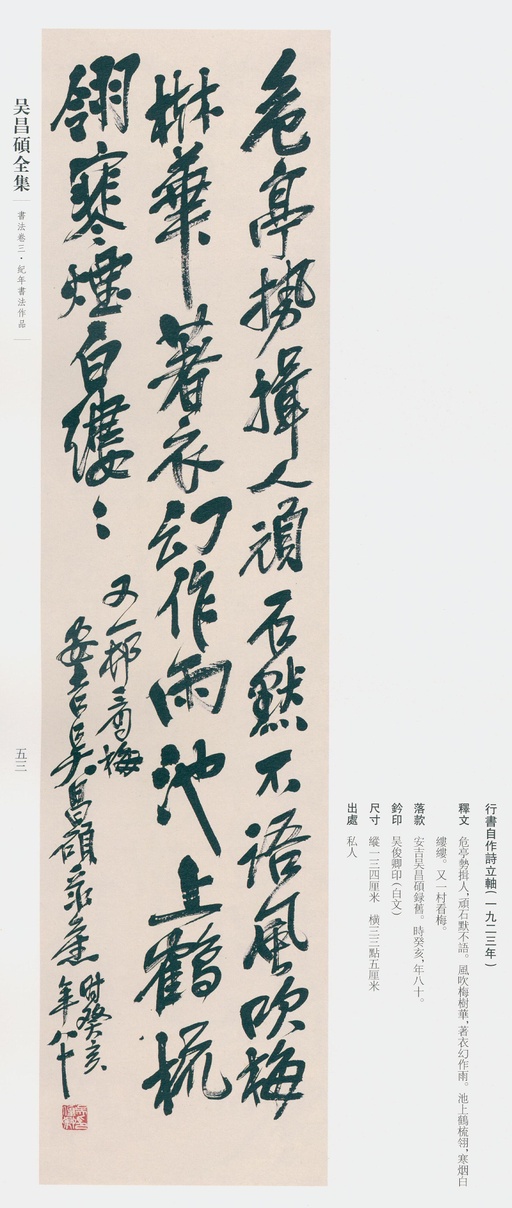 行書自作詩立軸(一九二三年)
釋文 危亭勢揖人,頑石默不語。風吹梅樹華,著衣幻作雨。池上鶴梳翎,寒烟白
縷縷。又一村看梅。
落款 安吉吴昌碩録舊。時癸亥,年八十。
鈐印 吴俊卿印(白文)
尺寸 縱一三四厘米 橫三三點五厘米
出處 私人
危亭勢揖人頑石默不語風吹梅
樹華著衣幻作雨池上鶴梳
翎寒煙白縷〻
又一邨看梅
安吉吴昌碩录舊
時癸亥
年八十
吴俊卿印
吴昌碩全集
書法卷三·紀年書法作品
五三